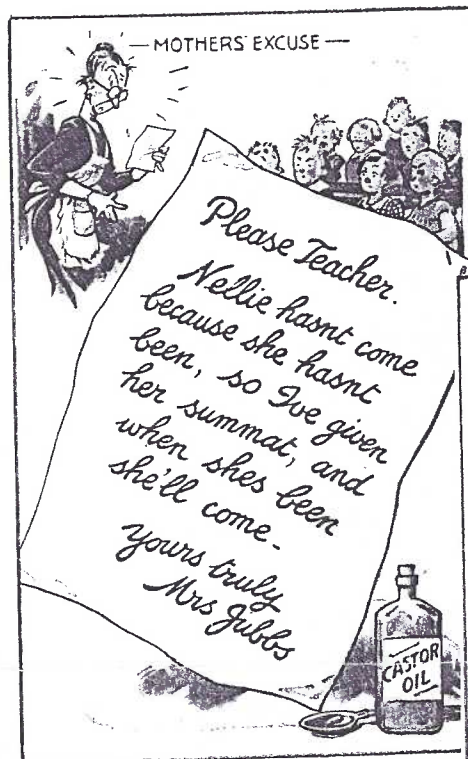 — MOTHERS' EXCUSE —
Please Teacher.
Nellie hasnt come
because she hasnt
been, so Ive given
her summat, and
when shes been
she'll come -
yours truly
Mrs Jubbs
CASTOR
OIL